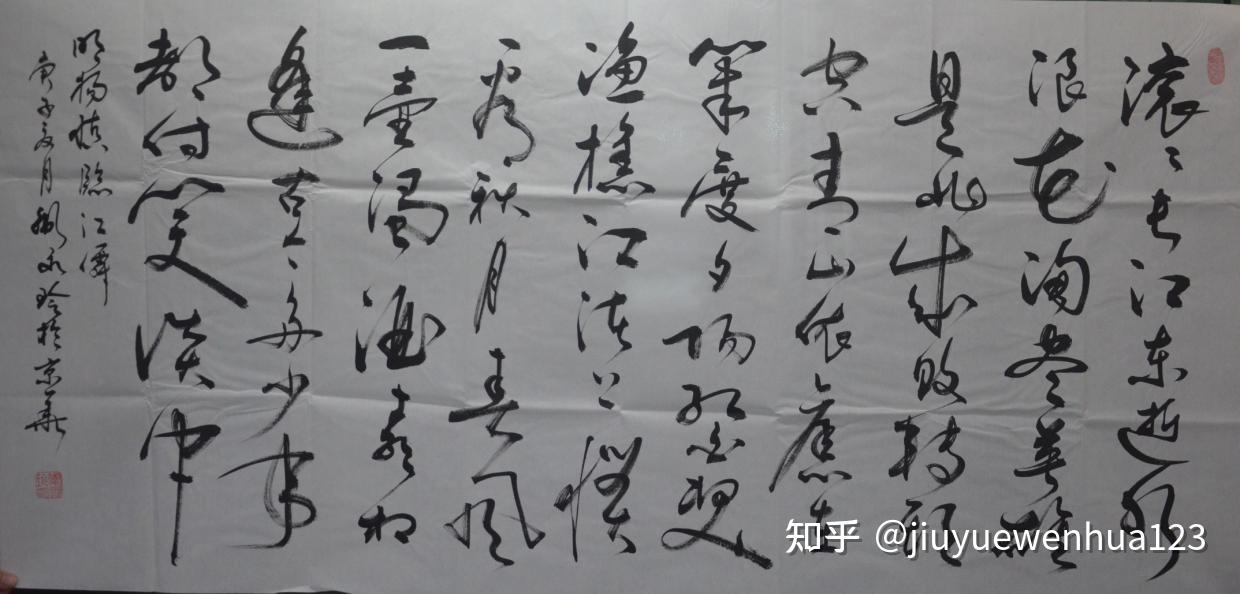 滚々长江东逝水
浪花淘尽英雄
是非成败转头
空青山依旧在
几度夕阳红白发
渔樵江渚上惯
看秋月春风
一壶浊酒喜相
逢古今多少事
都付笑谈中
明杨慎临江仙
庚子夏月永玲於京華
知乎 @jiuyuewenhua123